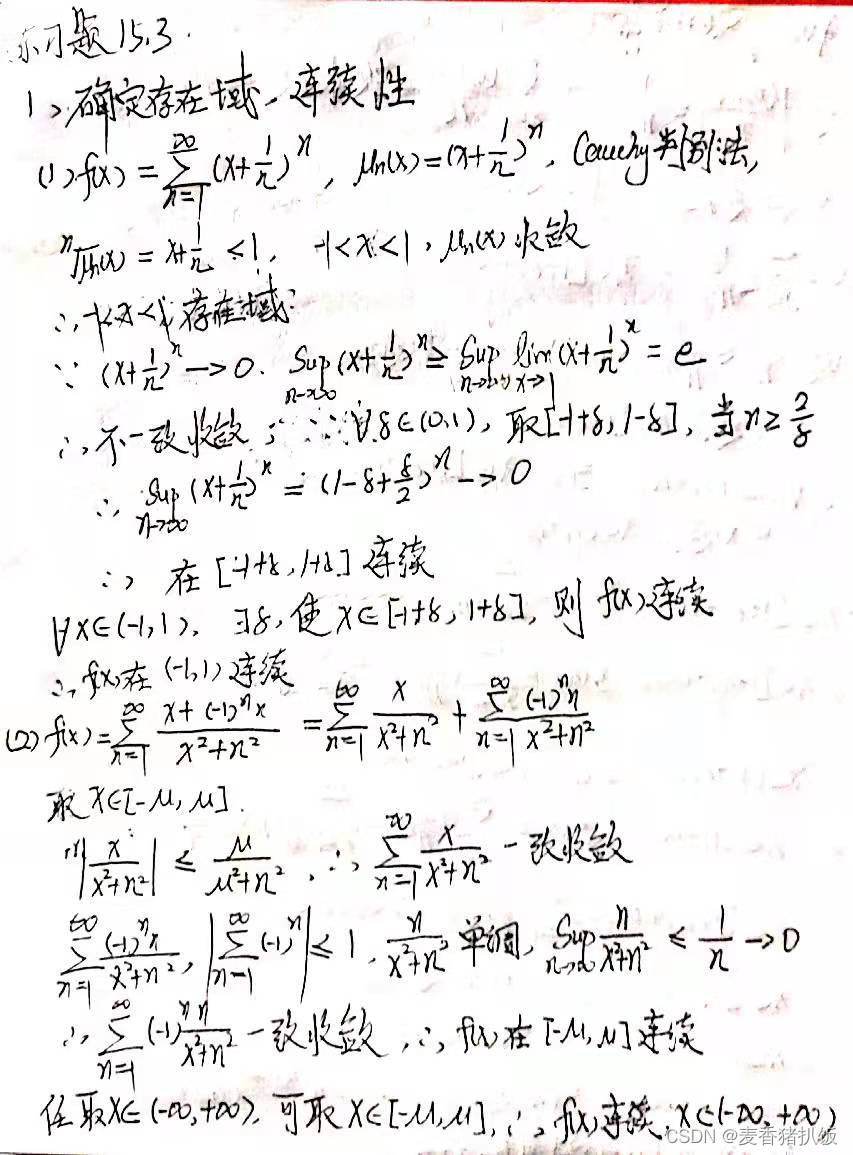 练习题15.3.
1、确定存在域、连续性
(1) f(x) = ∑_{n=1}^{∞} (x+1/n)^n, μn(x) = (x+1/n)^n, Cauchy判别法,
ⁿ√μn(x) = x+1/n < 1, -1<x<1, μn(x) 收敛
∴ -1<x<1 存在域
∵ (x+1/n)^n → 0. Sup_{n→∞} (x+1/n)^n ≥ Sup_{n→∞} lim_{x→1} (x+1/n)^n = e
∴ 不一致收敛; ∀δ∈(0,1), 取[-1+δ, 1-δ], 当 n ≥ 2/δ
∴ Sup_{n→∞} (x+1/n)^n = (1-δ+δ/2)^n → 0
∴ 在 [-1+δ, 1+δ] 连续
∀x∈(-1,1), ∃δ, 使 x∈[-1+δ, 1+δ], 则 f(x) 连续
∴ f(x)在 (-1,1) 连续
(2) f(x) = ∑_{n=1}^{∞} (x+(-1)^n x)/(x²+n²) = ∑_{n=1}^{∞} x/(x²+n²) + ∑_{n=1}^{∞} (-1)^n n/(x²+n²)
取 x∈[-μ, μ].
|x/(x²+n²)| ≤ μ/(μ²+n²), ∴ ∑_{n=1}^{∞} x/(x²+n²) 一致收敛
∑_{n=1}^{∞} (-1)^n n/(x²+n²), |∑_{n=1}^{∞} (-1)^n| ≤ 1, n/(x²+n²) 单调, Sup_{n→∞} n/(x²+n²) ≤ 1/n → 0
∴ ∑_{n=1}^{∞} (-1)^n n/(x²+n²) 一致收敛, ∴ f(x) 在 [-μ, μ] 连续
任取x∈(-∞,+∞), 可取 x∈[-μ, μ], ∴ f(x) 连续, x∈(-∞,+∞)
CSDN @麦香猪扒饭